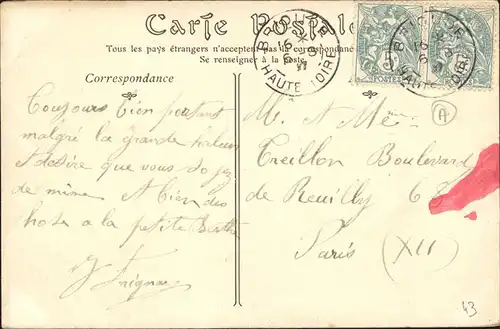 Carte Postale
Tous les pays étrangers n'acceptent pas la correspondance
Se renseigner à la poste.
BRIOUDE
HAUTE LOIRE
POSTES
BRIOUDE
HAUTE LOIRE
Correspondance
Toujours bien portant
malgré la grande chaleur
et désire que vous soyez
de même et bien des
chose a la petite Berthe
M. et Mme
A
Treillon Boulevard
de Reuilly 6
Paris (XII)
43